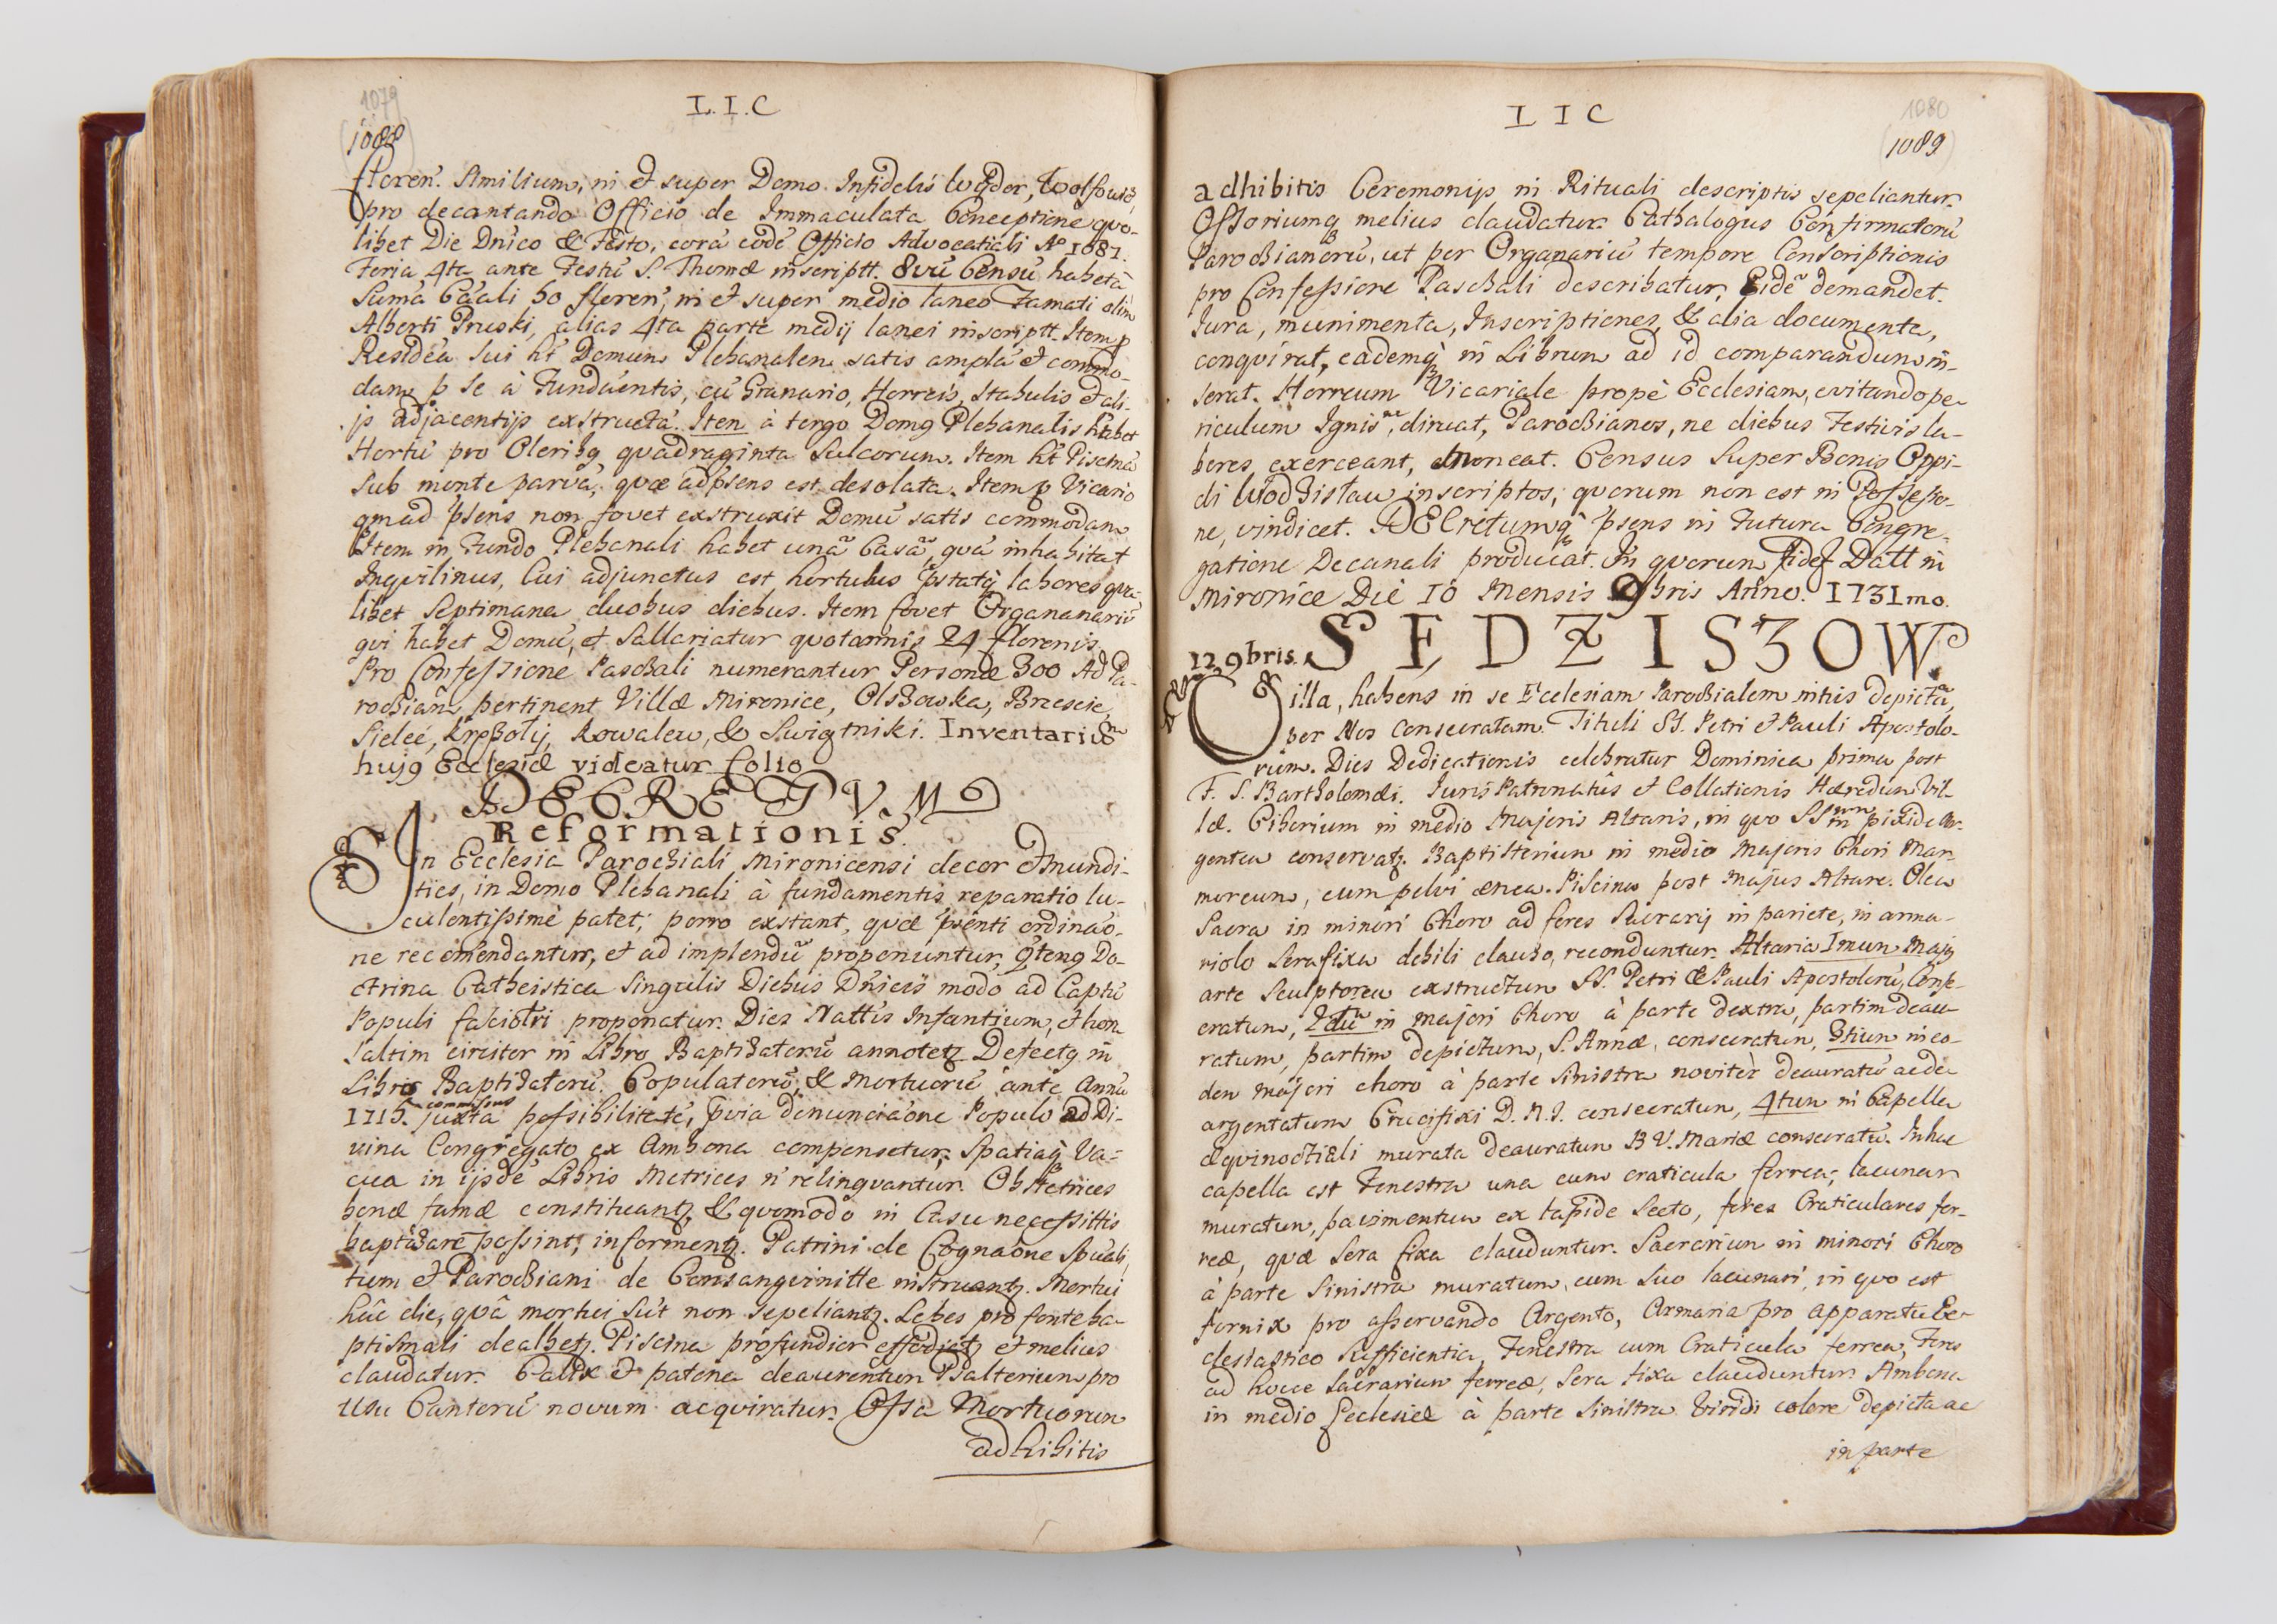 1079
L. I. C
1088
floren. Similium, in et super Domo Infidelis
pro decantando Officio de Immaculata Conceptione quo-
libet Die Dnico & Festo, corā eodē Officio Advocatiali Aº 1681.
Feria 4ta ante Festū S. Thomæ inscriptt. 8vū Censū habet ā
Sumā Cāali 60 floren, in et super medio laneo Famati olim
Alberti Pruski, alias 4ta parte medij lanei inscriptt. Item p
Residēa sui ht Domum Plebanalem satis amplā et commo-
dam p se à Fundāentis, cū Granario, Horreis, Stabulis et ali-
js adjacentijs exstructā. Item à tergo Domq Plebanalis habet
Hortū pro Oleribq quadraginta Sulcorum. Item ht Piscinā
sub monte parvā, quæ adpsens est desolata. Item p Vicario
qm ad psens non fovet exstruxit Domū satis commodam
Item in Fundo Plebanali habet unā Casā, quā inhabitat
Inqvilinus, Cui adjunctus est hortulus pstatq labores qva-
libet Septimana duobus diebus. Item fovet Organanariū
qvi habet Domū, et Sallariatur quotannis 24 florenis.
Pro Confessione Paschali numerantur Personæ 300 Ad Pa-
rochiam pertinent Villæ Mironice, Olszowka, Brzescie,
Sielec, Krzęzoły, Kowalew, & Swiętniki. Inventarium
hujq Ecclesiæ videatur folio
DECRETUM
Reformationis.
In Ecclesia Parochiali Mironicensi decor et mundi-
ties, in Domo Plebanali à fundamentis reparatio lu-
culentissimè patet; porro exstant, quæ psenti ordinao-
ne recomendantur, et ad implendū proponuntur, Qtenq Do-
ctrina Catheistica Singulis Diebus Dnicis modo ad Captū
Populi faciotri proponatur. Dies Nattis Infantium, et hora
saltim circiter in Libro Baptisatorū annotetz. Defectq in
Libris Baptizatorū. Copulatorū, & Mortuorū ante Annū
1715. commissus juxta possibilitatē, pvia denunciāone Populo ad Di-
vina Congregato ex Ambona compensetur, Spatiaq Va-
cua in ijsdē Libris Metrices ñ relinqvantur. Obstetrices
bonæ famæ constituantz, & quomodo in Casu necessittis
baptizare possint, informentz. Patrini de Cognaōne Spūali,
tum et Parochiani de Consangvinitte instruantz. Mortui
hāc die, quâ mortui sūt non sepeliantz. Lebes pro fonte ba-
ptismali dealbetz. Piscina profundior effodiatz et melius
claudatur. Calix et patena deaurentur. Psalterium pro
usu Cantorū novum acqviratur. Ossa Mortuorum
adhibitis
1080
L I C
1089
adhibitis Ceremonijs in Rituali descriptis sepeliantur.
Ossoriumq melius claudatur. Cathalogus Confirmatorū
Parochianorū, ut per Organariū tempore Conscriptionis
pro Confessione Paschali describatur, Eidē demandet.
Jura, munimenta, Inscriptiones, & alia documenta,
conqvirat, eademq in Librum ad id comparandum in-
serat. Horreum Vicariale propè Ecclesiam, evitando pe-
riculum Ignis, diruat, Parochianos, ne diebus Festivis la-
bores exerceant, moneat. Census super Bonis Oppi-
di Wodzisław inscriptos, quorum non est in Possessio-
ne, vindicet. DECretumq psens in Futura Congre-
gatione Decanali producat. In quorum fidez Datt in
Mironice Die 10 Mensis 9bris Anno. 1731mo.
12. 9bris. SĘDZISZOW.
Villa, habens in se Ecclesiam Parochialem intus depictā,
per Nos consecratam Tituli SS. Petri et Pauli Apostolo-
rum. Dies Dedicationis celebratur Dominica prima post
F. S. Bartholomæi. Juris Patronatûs et Collationis Hæredum Vil-
læ. Ciborium in medio Majoris Altaris, in quo SSmum in pixide Ar-
gentea conservatz. Baptisterium in medio Majoris Chori Mar-
moreum, cum pelvi ænea. Piscina post Majus Altare. Olea
Sacra in minori Choro ad fores Sacrarij in pariete, in arma-
riolo Sera fixa debili clauso, reconduntur. Altaria Imum Majq
arte Sculptorea exstructum SS. Petri & Pauli Apostolorū, Conse-
cratum, 2dū in majori Choro à parte dextra, partim deau-
ratum, partim depictum, S. Annæ, consecratum, 3tium in eo-
dem majori choro à parte sinistra noviter deauratū ac de-
argentatum Crucifixi D. N. J. consecratum, 4tum in Capella
æqvinoctiali murata deauratum B V. Mariæ consecratū. In hac
capella est Fenestra una cum craticula ferrea, lacunar
muratum, pavimentum ex lapide Secto, fores Craticulares fer-
reæ, quæ Sera fixa clauduntur. Sacrarium in minori Choro
à parte Sinistra muratum, cum suo lacunari, in quo est
fornix pro asservando Argento, Armaria pro apparatu Ec-
clesiastico Sufficientia, Fenestra cum Craticula ferrea, Fores
ad hocce Sacrarium ferreæ, Sera fixa clauduntur. Ambona
in medio Ecclesiæ à parte Sinistra Viridi colore depicta ac
in parte